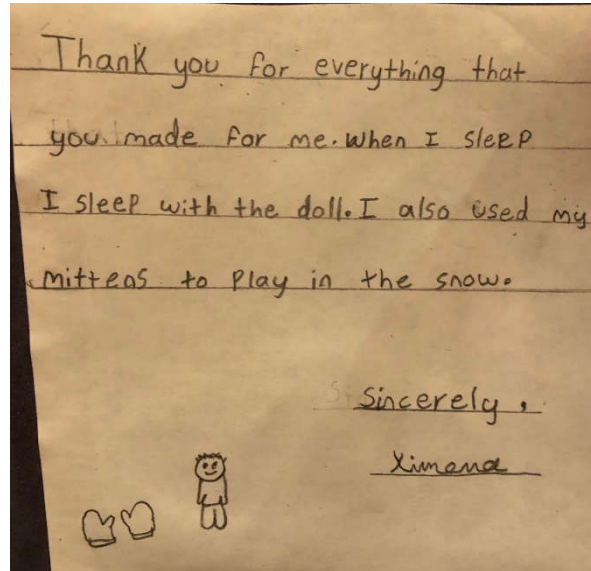 Thank you for everything that
you made for me. When I sleep
I sleep with the doll. I also used my
mittens to play in the snow.
Sincerely,
Ximena